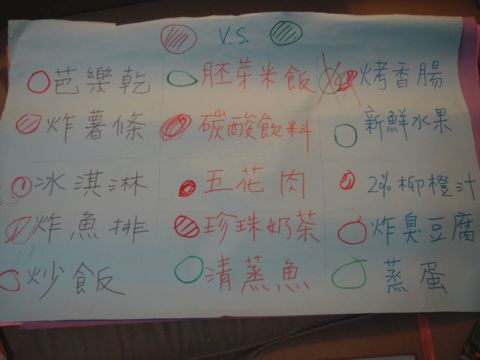 V.S.
芭樂乾 胚芽米飯 烤香腸
炸薯條 碳酸飲料 新鮮水果
冰淇淋 五花肉 20%柳橙汁
炸魚排 珍珠奶茶 炸臭豆腐
炒飯 清蒸魚 蒸蛋